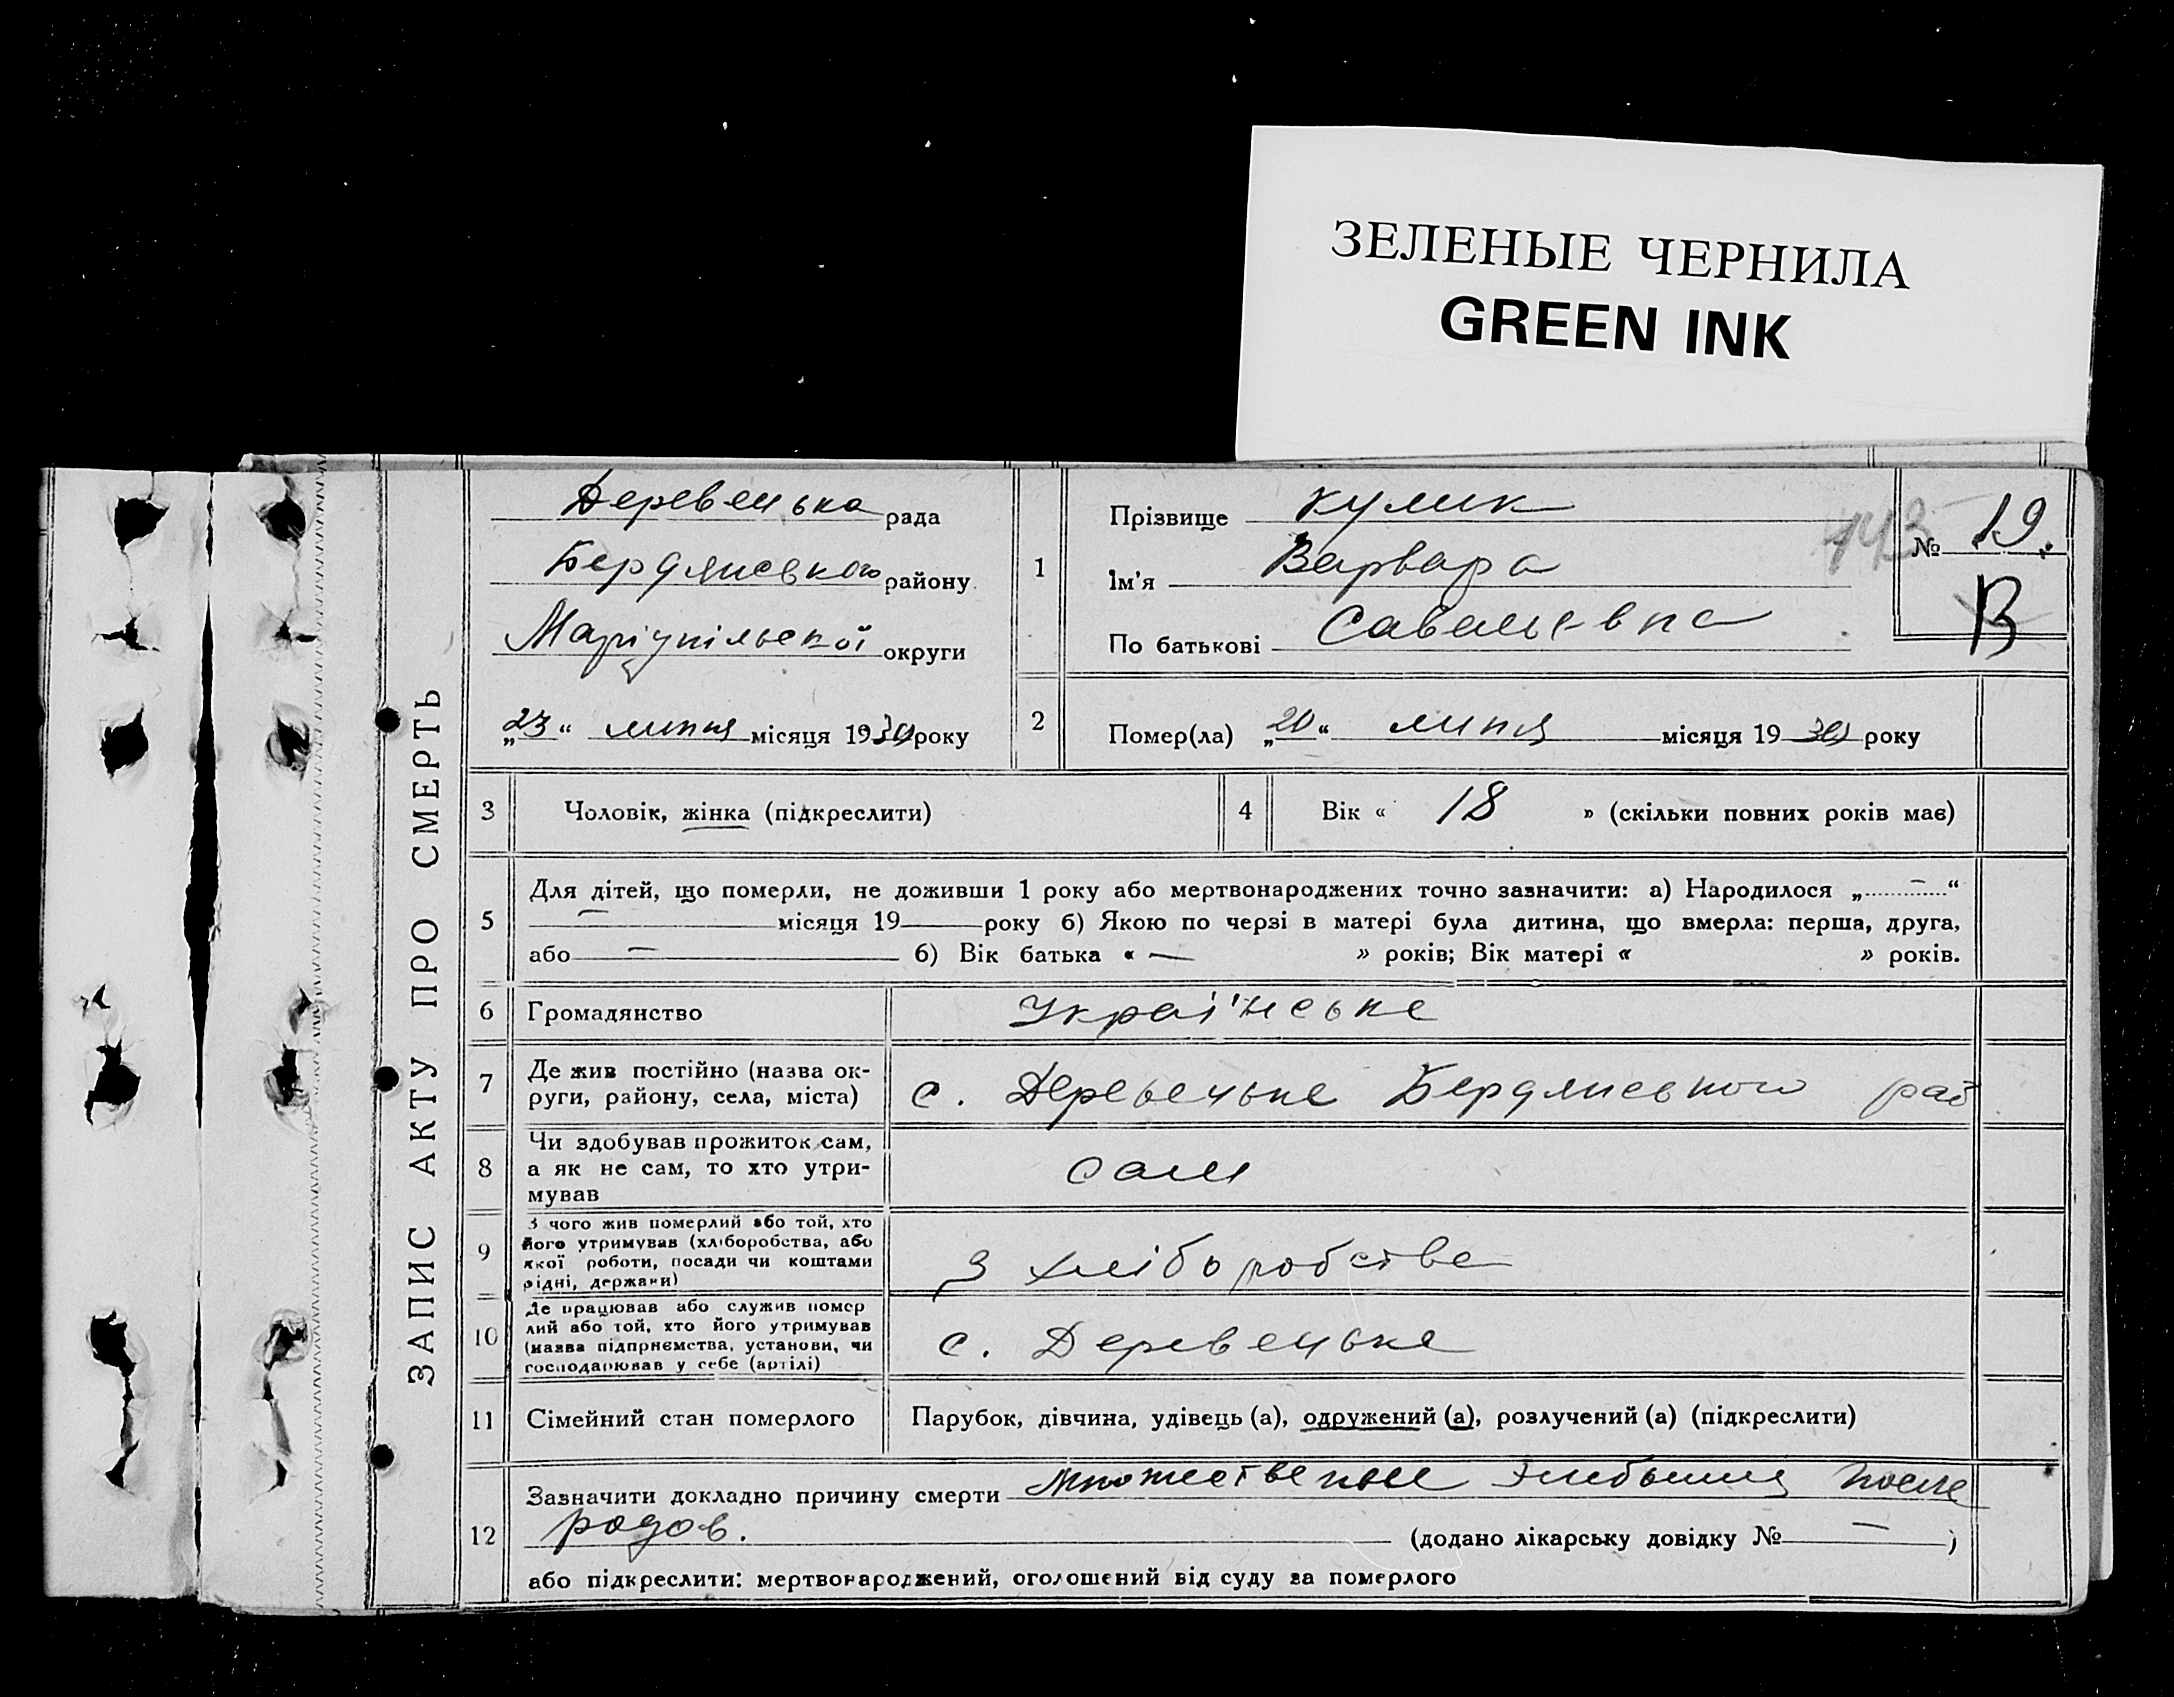 ЗЕЛЕНЫЕ ЧЕРНИЛА
GREEN INK
ЗАПИС АКТУ ПРО СМЕРТЬ
Деревецька рада
Бердянського району
Маріупільської округи
„23“ липня місяця 1930 року
1
Прізвище Кулик
Ім'я Варвара
По батькові Савельевна
143
№ 19.
В
2
Помер(ла) „20“ липня місяця 1930 року
3
Чоловік, жінка (підкреслити)
4
Вік « 18 » (скільки повних років має)
5
Для дітей, що померли, не доживши 1 року або мертвонароджених точно зазначити: а) Народилося „ — “
— місяця 19 року б) Якою по черзі в матері була дитина, що вмерла: перша, друга,
або — б) Вік батька « — » років; Вік матері « » років.
6
Громадянство
Украї'нське
7
Де жив постійно (назва ок-
руги, району, села, міста)
с. Деревецьке Бердянського рай
8
Чи здобував прожиток сам,
а як не сам, то хто утри-
мував
сам
9
З чого жив померлий або той, хто
його утримував (хліборобства, або
якої роботи, посади чи коштами
рідні, держави)
З хліборобства
10
Де працював або служив помер
лий або той, хто його утримував
(назва підприємства, установи, чи
господарював у себе (артілі)
с. Деревецьке
11
Сімейний стан померлого
Парубок, дівчина, удівець (а), одружений (а), розлучений (а) (підкреслити)
12
Зазначити докладно причину смерти Множественные эмболия после
родов. (додано лікарську довідку № — )
або підкреслити: мертвонароджений, оголошений від суду за померлого